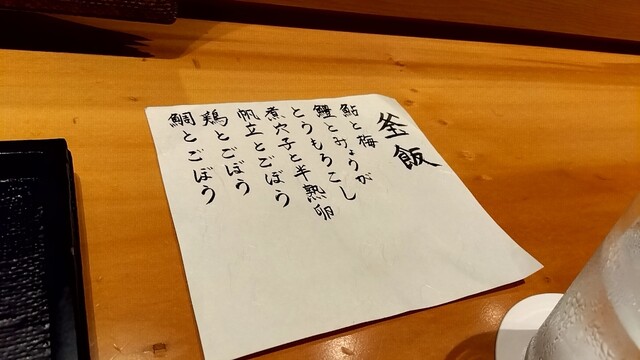 釜飯
鮎と梅
鱧とみょうが
とうもろこし
煮穴子と半熟卵
帆立とごぼう
鶏とごぼう
鯛とごぼう